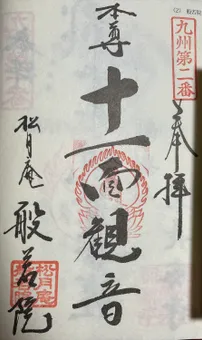 九州第二番
奉拝
本尊
十一面観音
松月庵
般若院